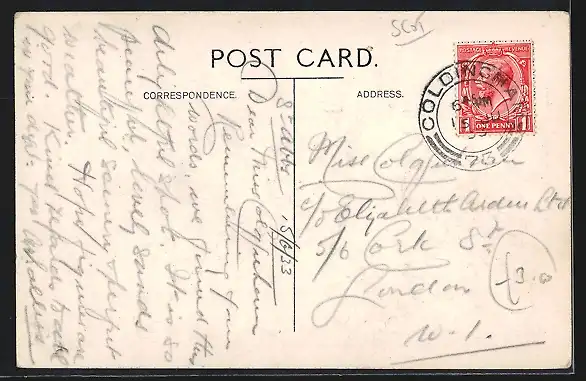 SCOT
POST CARD.
CORRESPONDENCE.
ADDRESS.
POSTAGE REVENUE
ONE PENNY
1
COLDINGHAM
75
St Abbs
15/6/33
Dear Miss Colquhoun
Remembering your
words, we found this
delightful spot. It is so
lovely, sands
beautiful scenery & perfect
weather. Hope figures are
good. Kind regards to all
Miss Colquhoun
c/o Elizabeth Arden Ltd
5/6 Cork St
London
W.1.